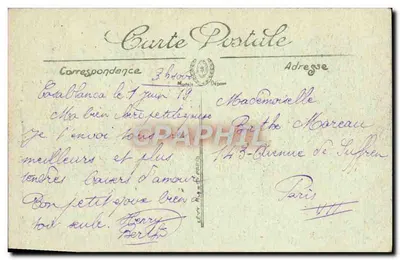 Carte Postale
Correspondance
Adresse
3 heures
Casablanca le 1 juin 19
Ma bien
Je t'envoi tous mes
meilleurs et plus
tendres baisers d'amour
Ton petit à
toi seule. Henry
Mademoiselle
Marthe Moreau
143 Avenue de Suffren
Paris
VII